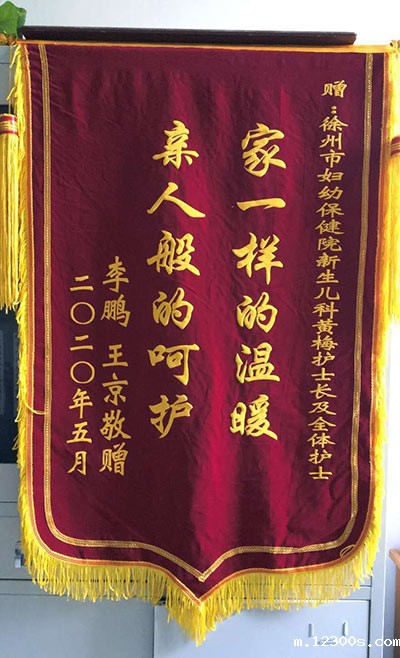 赠：徐州市妇幼保健院新生儿科黄梅护士长及全体护士
家一样的温暖
亲人般的呵护
李鹏 王京敬赠
二〇二〇年五月
m.12300s.com